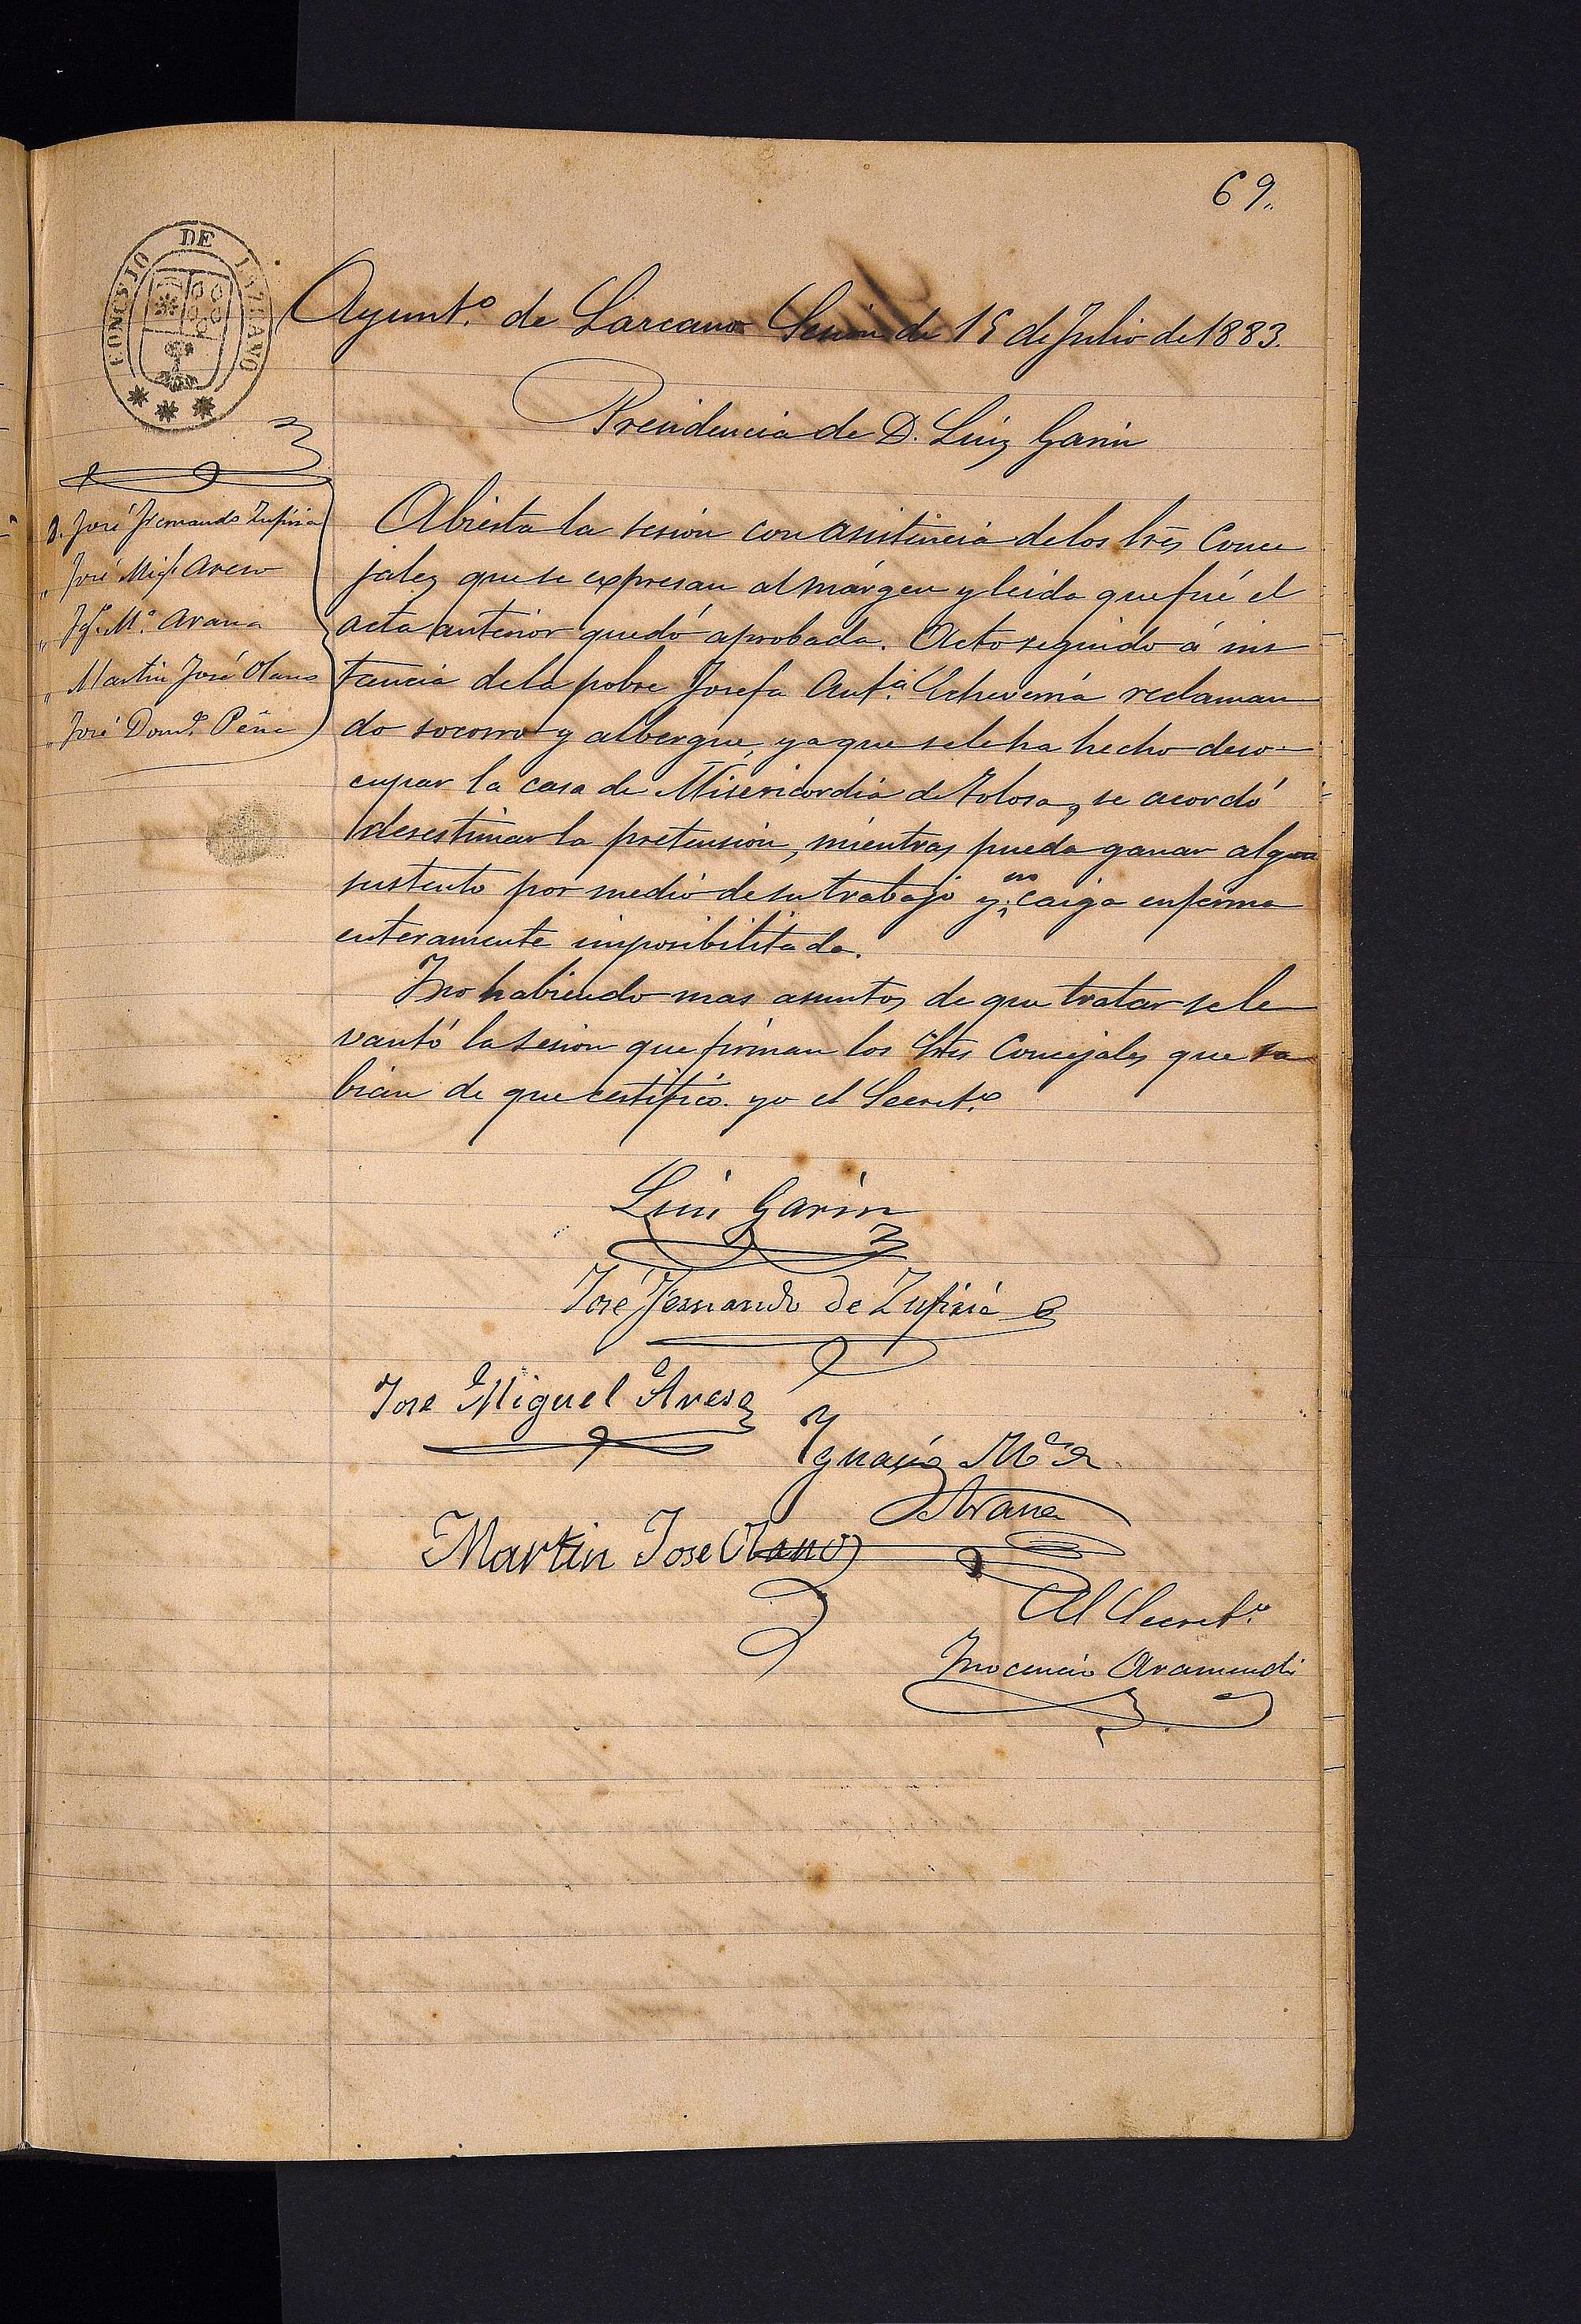 69.
CONCEJO DE LAZCANO
Ayunt.º de Larcano Sesion de 15 de Julio de 1883.
Presidencia de D. Luiz Garin
D. José Fernando Zufiria
„ José Mig.l Areso
„ Ig.º M.ª Arana
„ Martin José Olano
„ José Dom.º Peña
Abierta la sesión con asistencia de los Sres Conce
jales que se expresan al márgen y leida que fué el
acta anterior quedó aprobada. Acto seguido á ins
tancia de la pobre Josefa Ant.ª Echeverria reclaman
do socorro y albergue, ya que se le ha hecho deso-
cupar la casa de Misericordia de Tolosa, se acordó
desestimar la pretensión, mientras pueda ganar algun
sustento por medio de su trabajo y no caiga enferma
enteramente imposibilitada.
Y no habiendo mas asuntos de que tratar se le
vantó la sesion que firman los Sres Concejales que sa
bian de que certifico yo el Secret.º
Luis Garin
José Fernando de Zufiria
Jose Miguel Areso
Ygnacio M.ª de
Arana
Martin Jose Olano
El Secret.º
Inocencio Aramendi